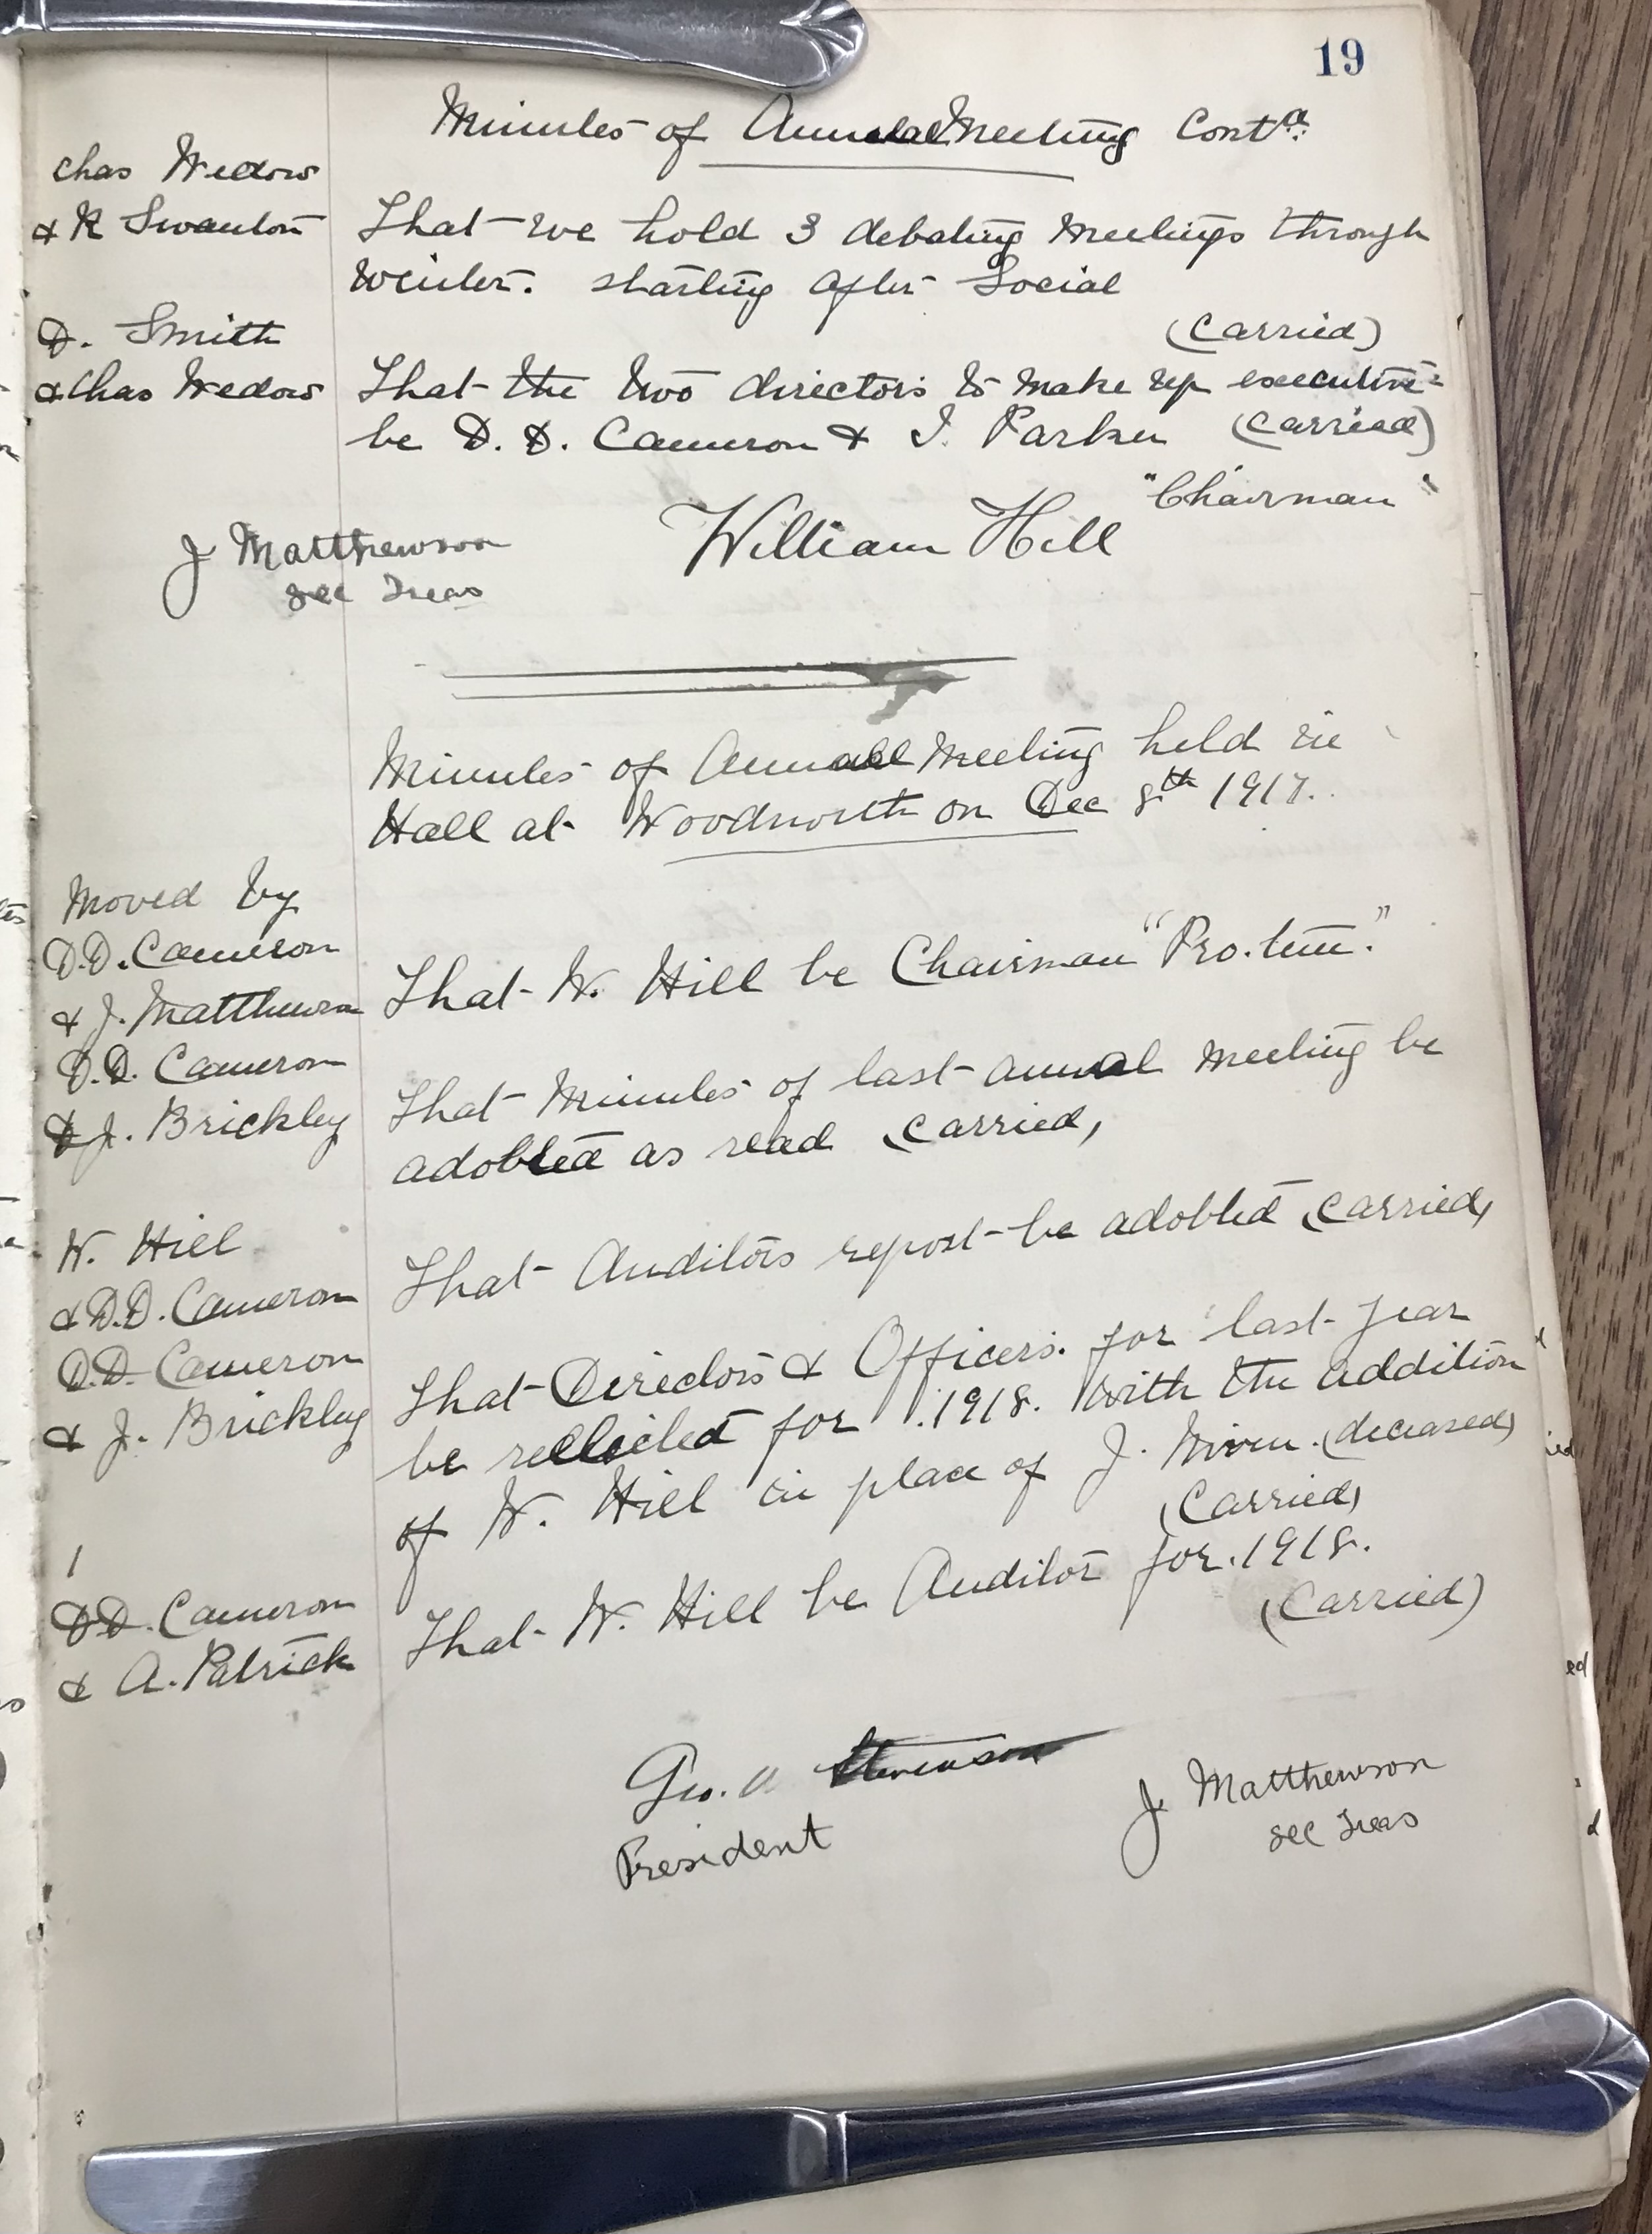 19
Minutes of Annual Meeting Contd.
Chas Wedow
& R Swanton
That we hold 3 debating meetings through
Winter. starting after Social
(Carried)
D. Smith
& Chas Wedow
That the two directors to make up executive
be D. D. Cameron & J. Parker (Carried)
"Chairman"
William Hill
J Matthewson
Sec Treas
Minutes of Annual Meeting held in
Hall at Woodnorth on Dec 8th 1917.
Moved by
D.D. Cameron
& J. Matthewson
That W. Hill be Chairman "Pro.tem."
D.D. Cameron
& J. Brickley
That Minutes of last annual meeting be
adobted as read (Carried)
W. Hill
& D.D. Cameron
That Auditors report be adobted (Carried)
D.D. Cameron
& J. Brickley
That Directors & Officers. for last year
be reelected for .1918. With the addition
of W. Hill in place of J. Niven. (deceased)
(Carried)
D.D. Cameron
& A. Patrick
That W. Hill be Auditor for. 1918.
(Carried)
Geo. Stevenson
President
J Matthewson
Sec Treas